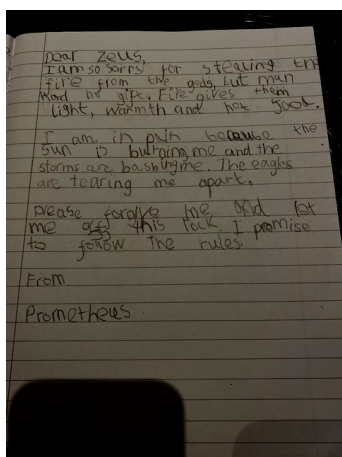 Dear Zeus,
I am so sorry for stealing the
fire from the gods but man
had no gifts. Fire gives them
light, warmth and hot food.
I am in pain because the
sun is burning me and the
storms are bashing me. The eagles
are tearing me apart.
please forgive me and let
me off this rock I promise
to follow The rules.
From
Prometheus